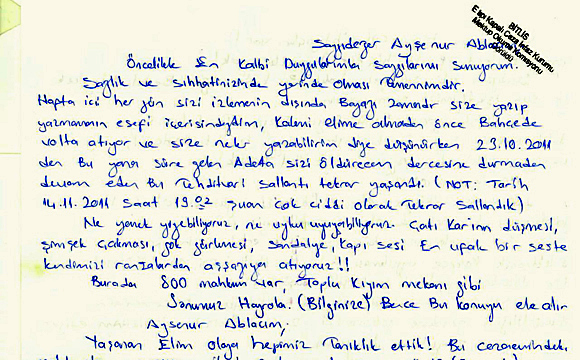 BİTLİS
E Tipi Kapalı Ceza İnfaz Kurumu
Mektup Okuma Komisyonu
GÖRÜLDÜ
Saygıdeğer Ayşenur Ablacım
Öncelikle En Kalbi Duygularımla Saygılarımı sunuyorum.
Sağlık ve sıhhatinizinde yerinde olması Temennimdir.
Hafta içi her gün sizi izlemenin dışında Bayağı zamandır size yazıp
yazmamanın esefi içerisindeydim, Kalemi elime almadan önce Bahçede
volta atıyor ve size neler yazabilirim diye düşünürken 23.10.2011
den Bu yana süre gelen Adeta sizi öldürecem dercesine durmadan
devam eden Bu Tehditvari Sallantı tekrar yaşandı. (NOT: Tarih
14.11.2011 Saat 19.02 şuan çok ciddi olarak Tekrar Sallandık)
Ne yemek yiyebiliyoruz, ne uyku uyuyabiliyoruz. Çatı Kar'ının düşmesi,
şimşek çakması, gök gürlemesi, sandalye, kapı sesi En ufak bir seste
kendimizi ranzalardan aşşağıya atıyoruz!!
Burada 800 mahkum var, Toplu Kıyım mekanı gibi
Sonumuz Hayrola. (Bilginize) Bence Bu konuyu ele alır
Ayşenur Ablacım;
Yaşanan Elim olaya hepimiz Tanıklık ettik! Bu cezaevindeki